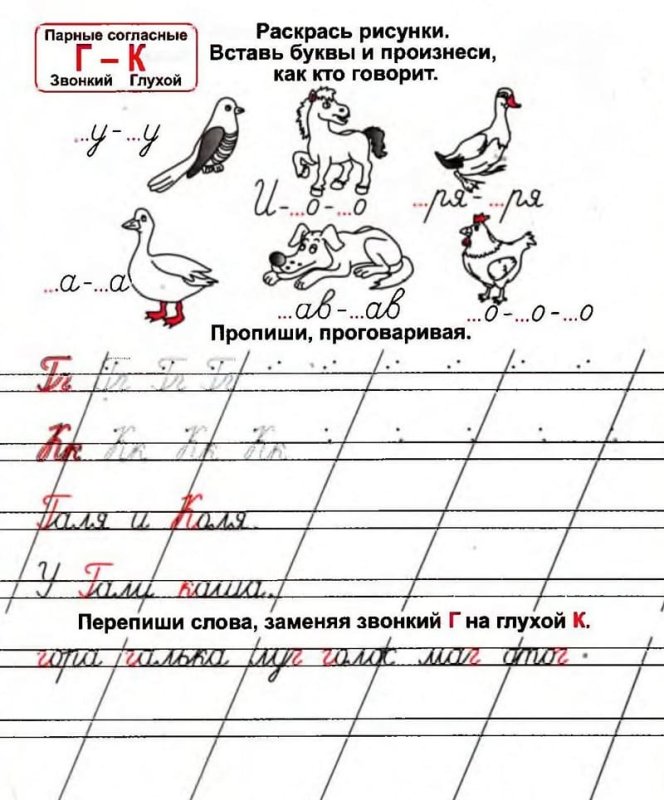 Парные согласные
Г – К
Звонкий Глухой
Раскрась рисунки.
Вставь буквы и произнеси,
как кто говорит.
...у-...у
И-...о-...о
...ря-...ря
...а-...а
...ав-...ав
...о-...о-...о
Пропиши, проговаривая.
Гг Гг Гг Гг
Кк Кк Кк Кк
Галя и Коля.
У Гали каша.
Перепиши слова, заменяя звонкий Г на глухой К.
гора галька луг голос маг отог